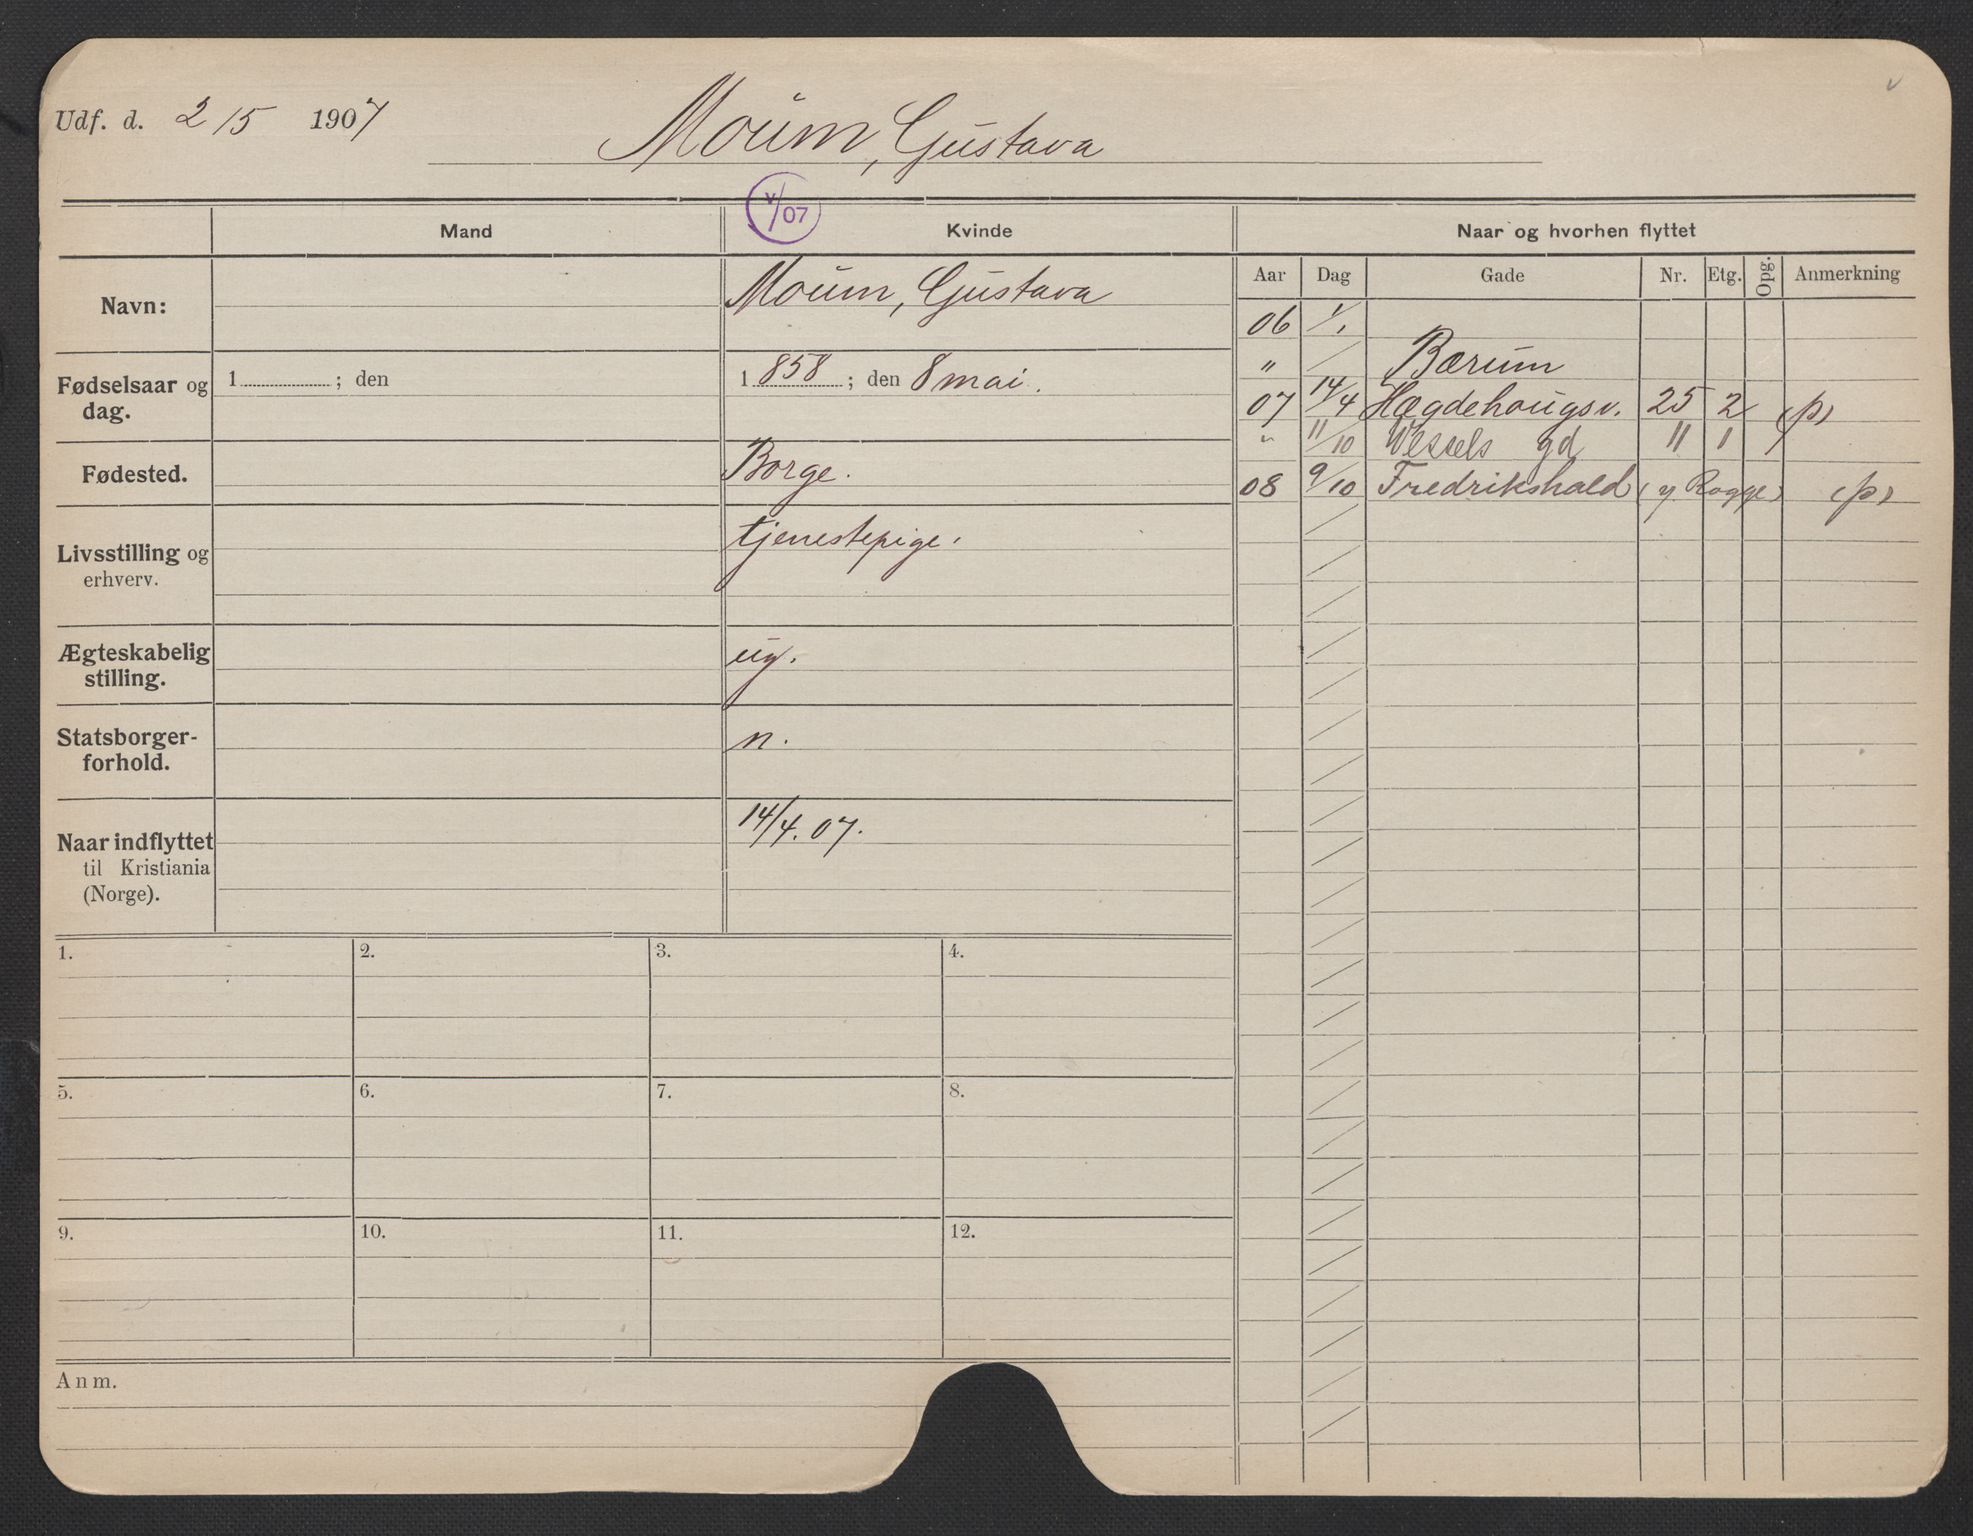 Udf. d. 2/5 1907
Moum, Gustava
v/07
Mand Kvinde Naar og hvorhen flyttet
Aar Dag Gade Nr. Etg. Opg. Anmerkning
Navn: Moum, Gustava
Fødselsaar og dag. 1 ; den 1 858 ; den 8 mai.
Fødested. Borge.
Livsstilling og erhverv. tjenestepige.
Ægteskabelig stilling. ug.
Statsborger-
forhold. n.
Naar indflyttet
til Kristiania
(Norge). 14/4. 07.
06 1/1
" Bærum
07 14/4 Hægdehougsv. 25 2 (p)
" 11/10 Wessels gd 11 1
08 9/10 Fredrikshald (y Rogge) (p)
1. 2. 3. 4.
5. 6. 7. 8.
9. 10. 11. 12.
Anm.